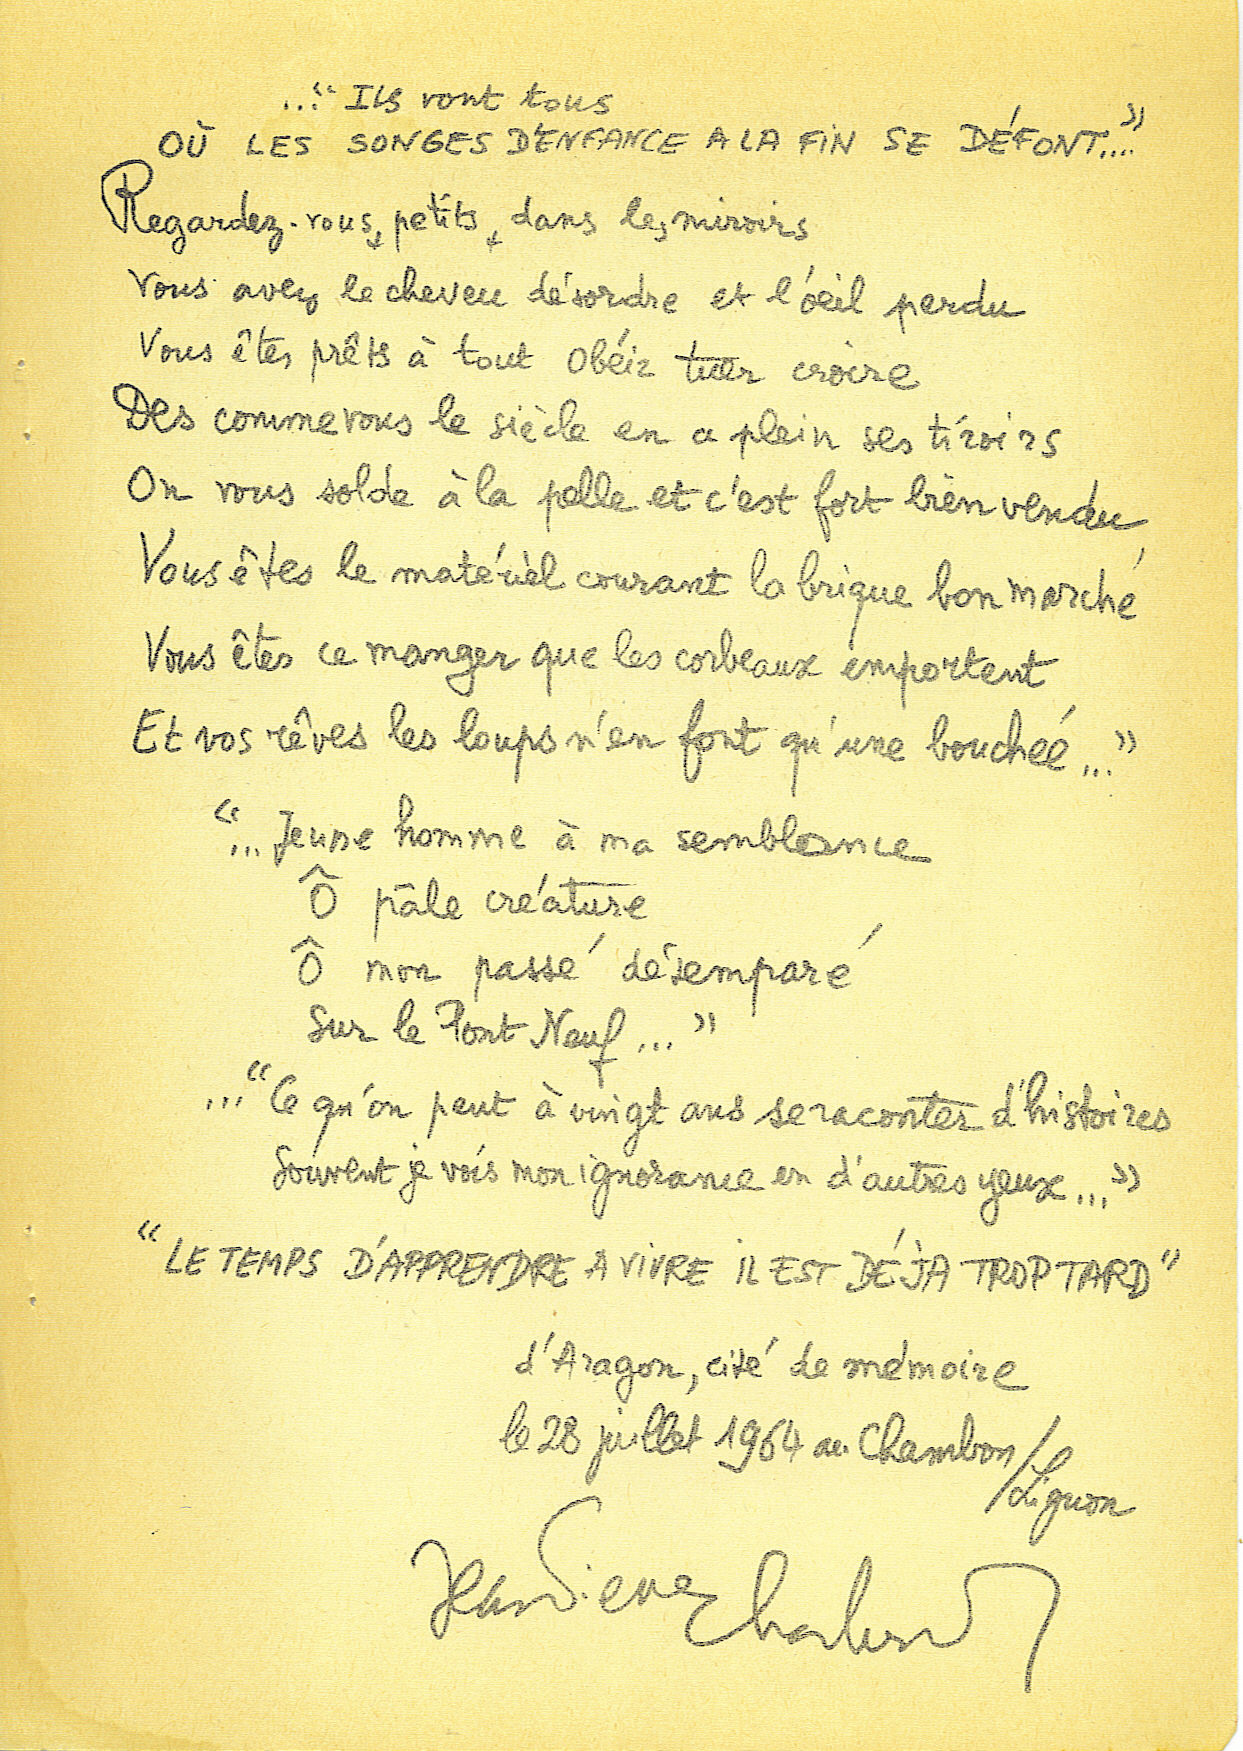 ..." Ils vont tous
OÙ LES SONGES D'ENFANCE A LA FIN SE DÉFONT...."
Regardez-vous, petits, dans les miroirs
Vous avez le cheveu désordre et l'oeil perdu
Vous êtes prêts à tout obéir tuer croire
Des comme vous le siècle en a plein ses tiroirs
On vous solde à la pelle et c'est fort bien vendu
Vous êtes le matériel courant la brique bon marché
Vous êtes ce manger que les corbeaux emportent
Et vos rêves les loups n'en font qu'une bouchée..."
"... Jeune homme à ma semblance
Ô pâle créature
Ô mon passé désemparé
Sur le Pont Neuf..."
..."Ce qu'on peut à vingt ans se raconter d'histoires
Souvent je vois mon ignorance en d'autres yeux..."
"LE TEMPS D'APPRENDRE A VIVRE IL EST DÉJÀ TROP TARD"
d'Aragon, cité de mémoire
le 28 juillet 1964 au Chambon/
Lignon
Jean Pierre